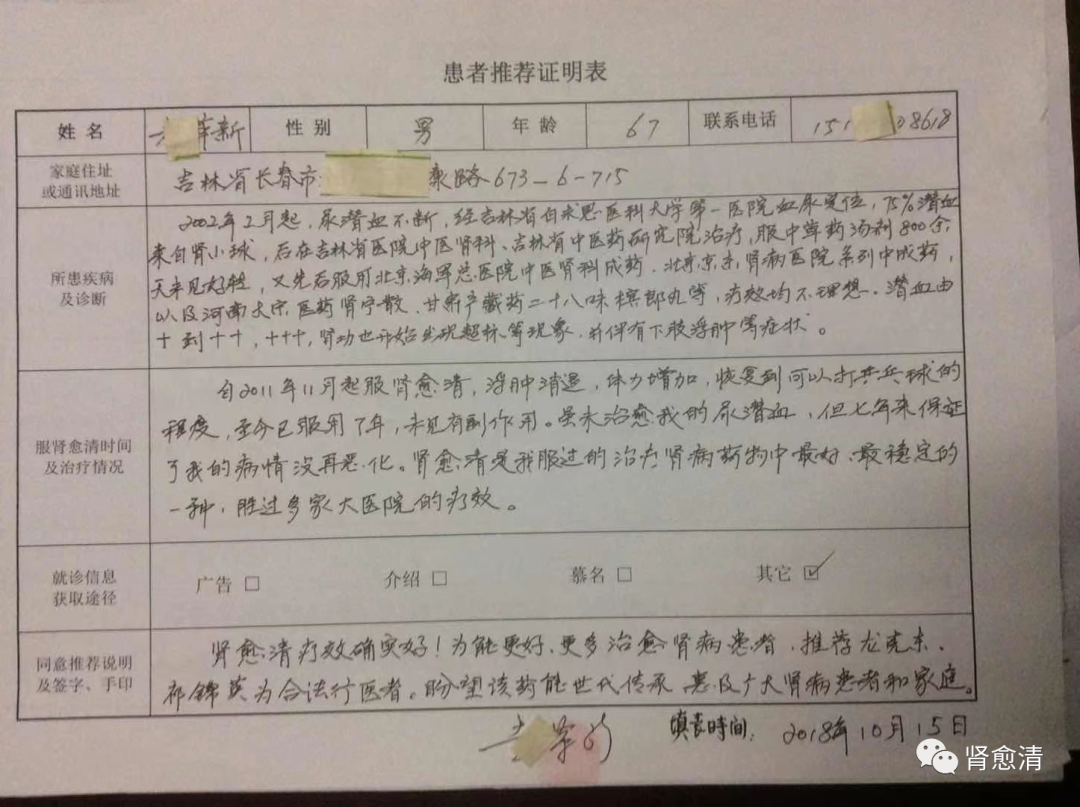 患者推荐证明表
姓 名 革新 性 别 男 年 龄 67 联系电话 151 08618
家庭住址
或通讯地址
吉林省长春市 康路673-6-715
所患疾病
及诊断
2002年2月起,尿潜血不断,经吉林省白求恩医科大学第一医院血尿定位,75%潜血
来自肾小球,后在吉林省医院中医肾科、吉林省中医药研究院治疗,服中草药汤剂800余,
天未见好转,又先后服用北京海军总医院中医肾科成药、北京京东肾病医院系列中成药,
以及河南大宗医药肾宁散、甘肃产藏药二十八味槟郎丸等,疗效均不理想。潜血由
+到++,+++,肾功也开始出现超标等现象,并伴有下肢浮肿等症状。
服肾愈清时间
及治疗情况
自2011年11月起服肾愈清,浮肿消退,体力增加,恢复到可以打乒乓球的
程度,至今已服用7年,未见有副作用。虽未治愈我的尿潜血,但七年来保证
了我的病情没再恶化。肾愈清是我服过的治疗肾病药物中最好、最稳定的
一种,胜过多家大医院的疗效。
就诊信息
获取途径
广告 □ 介绍 □ 慕名 □ 其它 ☑
同意推荐说明
及签字、手印
肾愈清疗效确实好!为能更好、更多治愈肾病患者,推荐龙克东、
祁锦英为合法行医者。盼望该药能世代传承 惠及广大肾病患者和家庭。
填表时间: 2018年10月15日
肾愈清